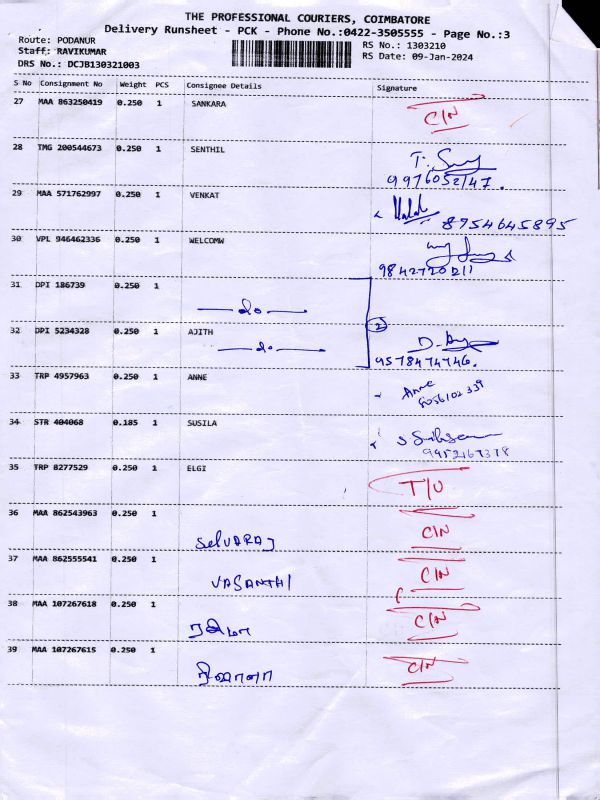 THE PROFESSIONAL COURIERS, COIMBATORE
Delivery Runsheet - PCK - Phone No.:0422-3505555 - Page No.:3
Route: PODANUR RS No.: 1303210
Staff: RAVIKUMAR RS Date: 09-Jan-2024
DRS No.: DCJB130321003
S No Consignment No Weight PCS Consignee Details Signature
27 MAA 863250419 0.250 1 SANKARA C/N
28 TMG 200544673 0.250 1 SENTHIL
9976052147.
29 MAA 571762997 0.250 1 VENKAT 8954645895
30 VPL 946462336 0.250 1 WELCOMW
9842720211
31 DPI 186739 0.250 1
2
32 DPI 5234328 0.250 1 AJITH
9578474746.
33 TRP 4957963 0.250 1 ANNE Anne
8056102339
34 STR 404068 0.185 1 SUSILA
35 TRP 8277529 0.250 1 ELGI T/U
36 MAA 862543963 0.250 1 SelVARAJ C/N
37 MAA 862555541 0.250 1 VASANTHI C/N
38 MAA 107267618 0.250 1 C/N
39 MAA 107267615 0.250 1 C/N